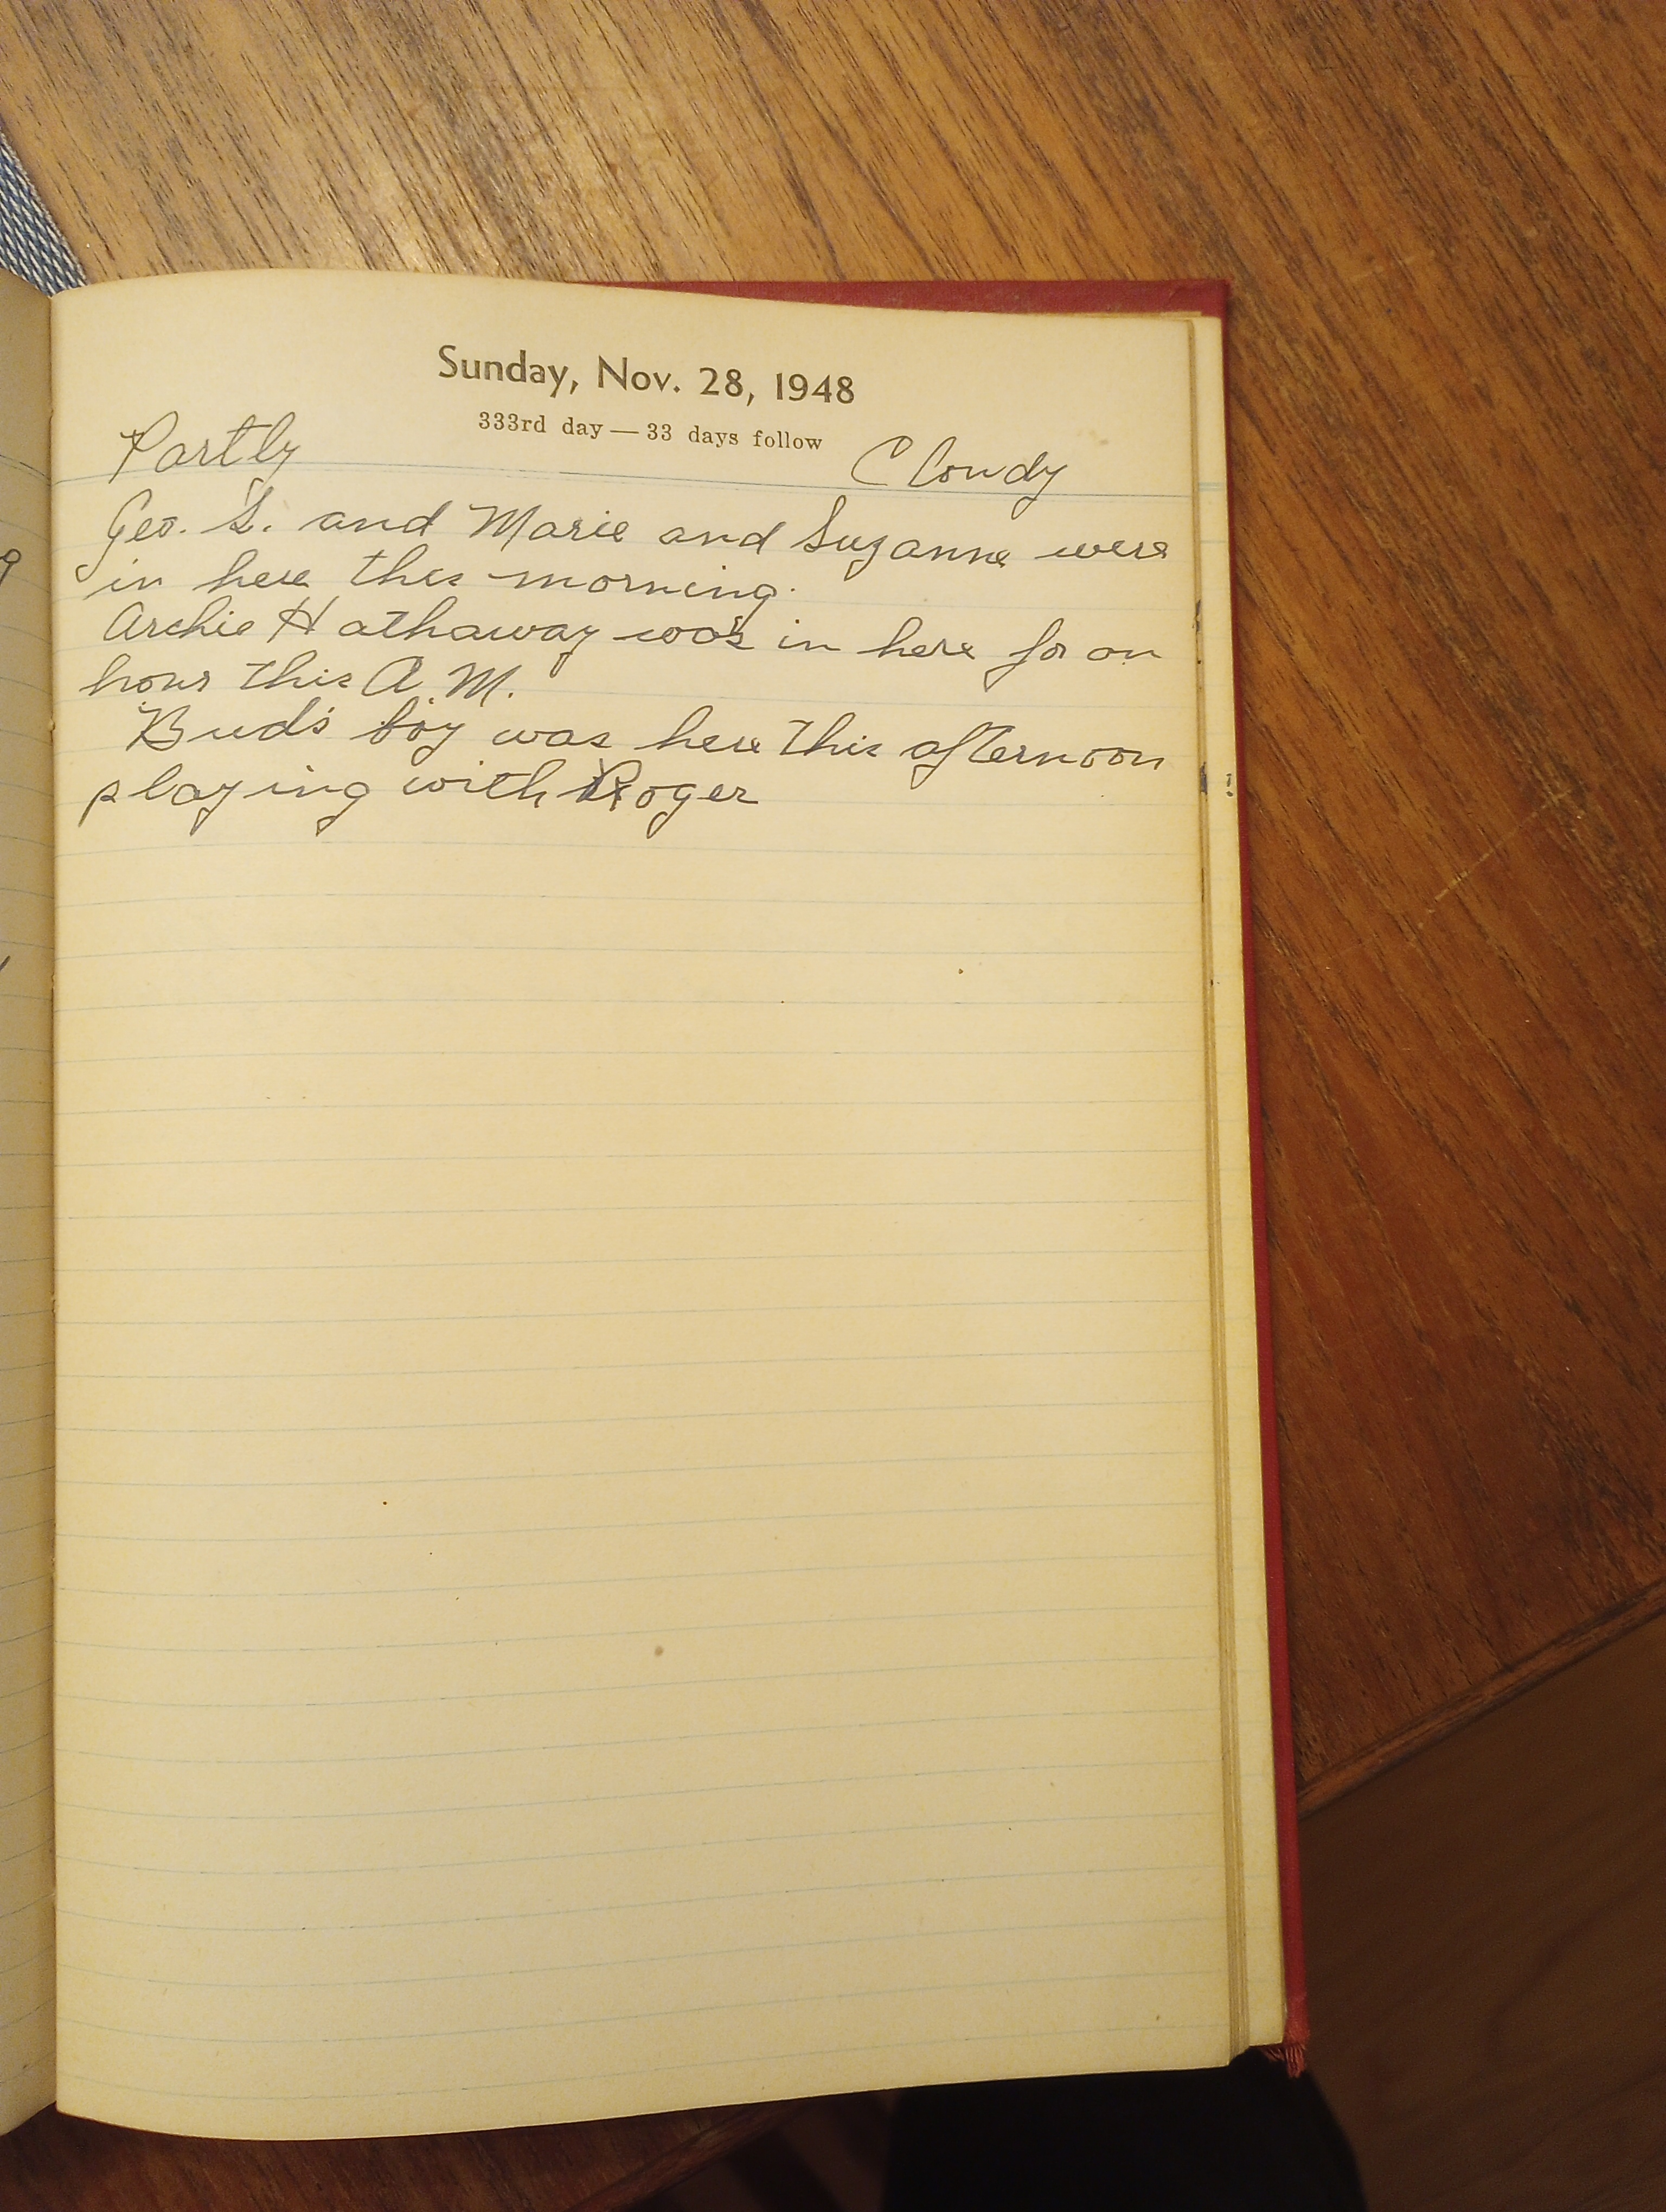 Sunday, Nov. 28, 1948
333rd day — 33 days follow
Partly Cloudy
Geo. S. and Marie and Suzanne were
in here this morning.
Archie Hathaway was in here for an
hour this A.M.
Bud's boy was here this afternoon
playing with Roger